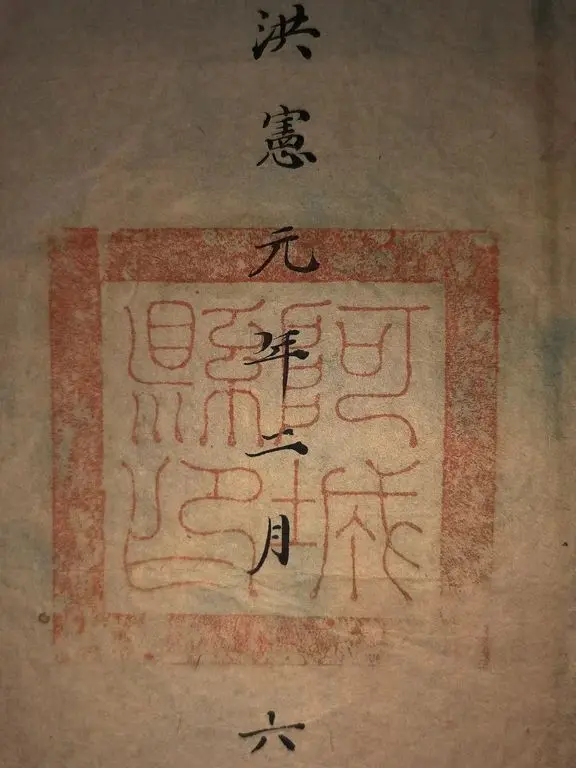 洪憲元年二月六
阿城
縣印